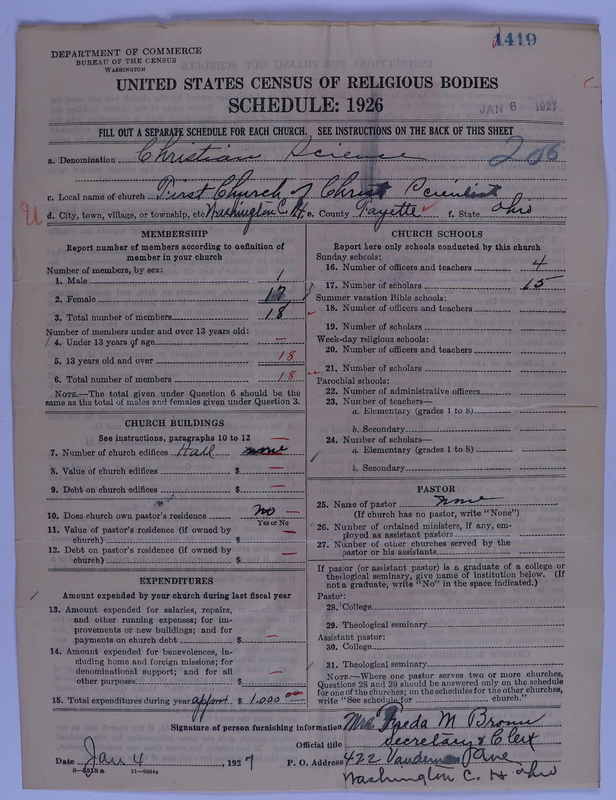 1419
DEPARTMENT OF COMMERCE
BUREAU OF THE CENSUS
WASHINGTON
UNITED STATES CENSUS OF RELIGIOUS BODIES
SCHEDULE: 1926
JAN 6 1927
FILL OUT A SEPARATE SCHEDULE FOR EACH CHURCH. SEE INSTRUCTIONS ON THE BACK OF THIS SHEET
a. Denomination Christian Science
206
c. Local name of church First Church of Christ Scientist
U d. City, town, village, or township, etc. Washington C. H. e. County Fayette f. State Ohio
MEMBERSHIP
Report number of members according to definition of
member in your church
Number of members, by sex:
1. Male 1
2. Female 17
3. Total number of members 18
Number of members under and over 13 years old:
4. Under 13 years of age —
5. 13 years old and over 18
6. Total number of members 18
NOTE.—The total given under Question 6 should be
same as the total of males and females given under Question 3.
CHURCH BUILDINGS
See instructions, paragraphs 10 to 12
7. Number of church edifices Hall none —
8. Value of church edifices $ —
9. Debt on church edifices $ —
10. Does church own pastor's residence No —
Yes or No
11. Value of pastor's residence (if owned by
church) $ —
12. Debt on pastor's residence (if owned by
church) $ —
EXPENDITURES
Amount expended by your church during last fiscal year
13. Amount expended for salaries, repairs,
and other running expenses; for im-
provements or new buildings; and for
payments on church debt $ —
14. Amount expended for benevolences, in-
cluding home and foreign missions; for
denominational support; and for all
other purposes $ —
15. Total expenditures during year $ 1,000 00
CHURCH SCHOOLS
Report here only schools conducted by this church
Sunday schools:
16. Number of officers and teachers 4
17. Number of scholars 15
Summer vacation Bible schools:
18. Number of officers and teachers
19. Number of scholars
Week-day religious schools:
20. Number of officers and teachers
21. Number of scholars
Parochial schools:
22. Number of administrative officers
23. Number of teachers—
a. Elementary (grades 1 to 8)
b. Secondary
24. Number of scholars—
a. Elementary (grades 1 to 8)
b. Secondary
PASTOR
25. Name of pastor None
(If church has no pastor, write "None")
26. Number of ordained ministers, if any, em-
ployed as assistant pastors
27. Number of other churches served by the
pastor or his assistants
If pastor (or assistant pastor) is a graduate of a college or
theological seminary, give name of institution below. (If
not a graduate, write "No" in the space indicated.)
Pastor:
28. College
29. Theological seminary
Assistant pastor:
30. College
31. Theological seminary
NOTE.—Where one pastor serves two or more churches,
Questions 28 and 29 should be answered only on the schedule
for one of the churches; on the schedules for the other churches,
write "See schedule for church."
Signature of person furnishing information Mrs. Freda M Brown
Official title Secretary & Clerk
Date Jan 4, 1927 P. O. Address 422 Ave
8-4518a 11-9064g Washington C. H Ohio